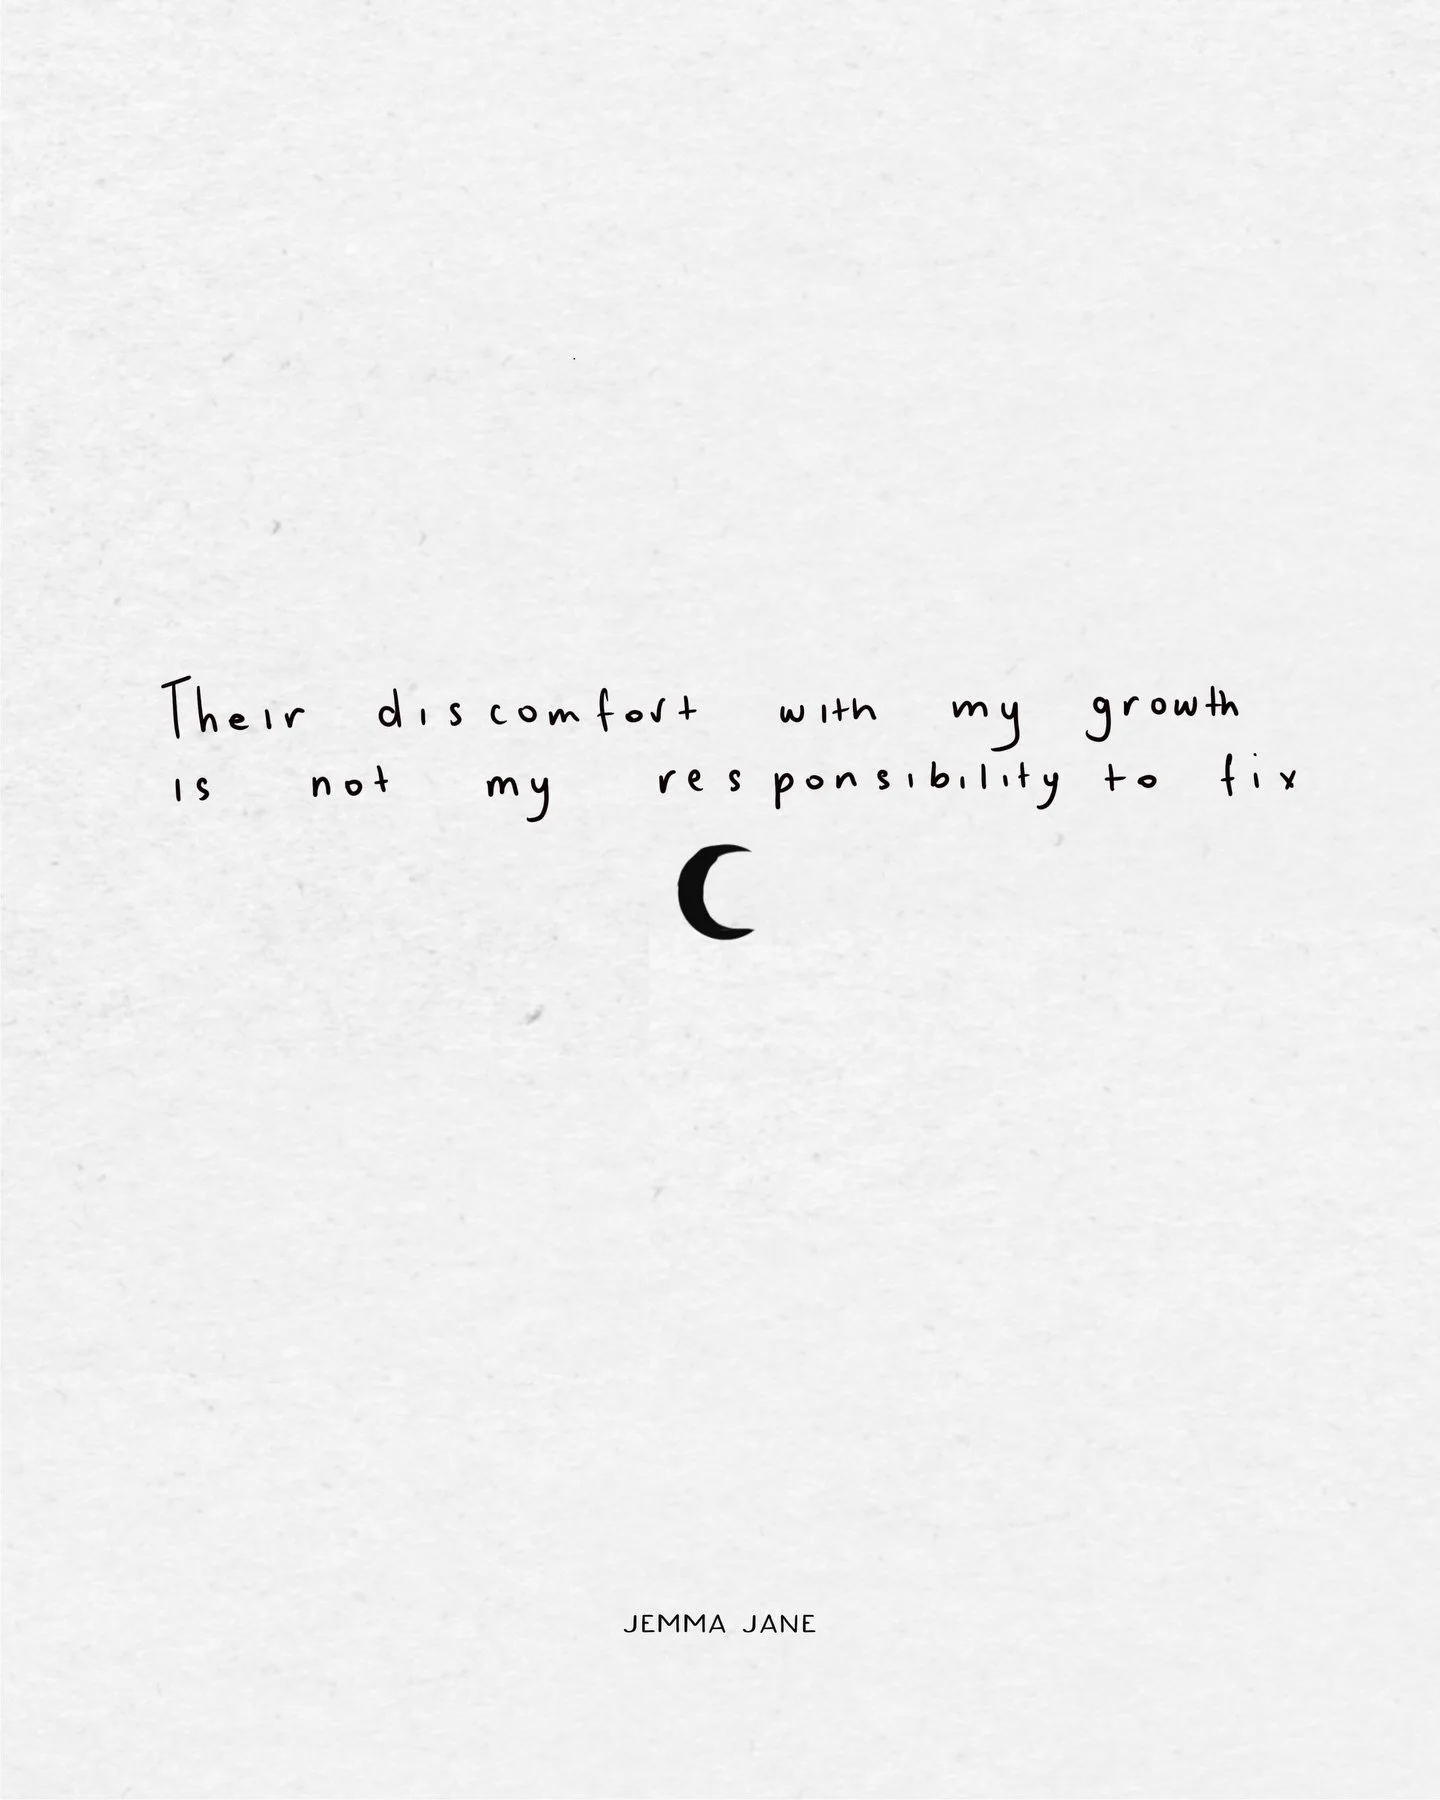 Their discomfort with my growth
is not my responsibility to fix
JEMMA JANE